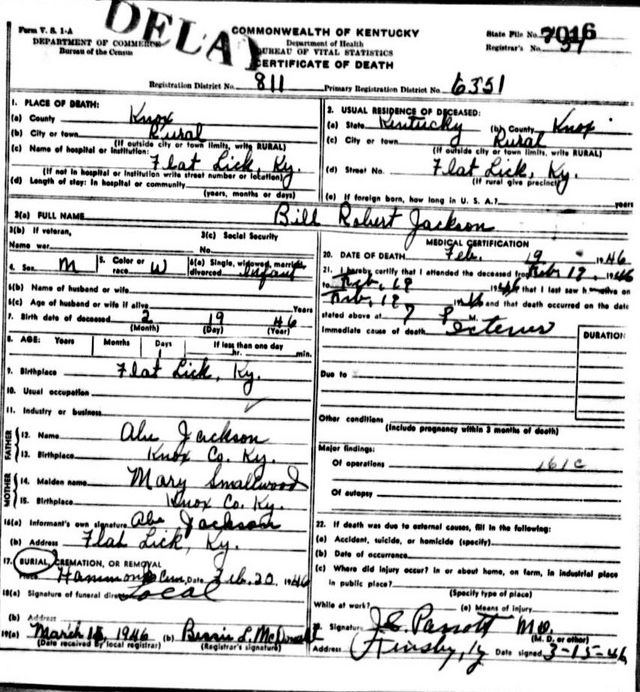 Form V. S. 1-A
DEPARTMENT OF COMMERCE
Bureau of the Census
DELAY
COMMONWEALTH OF KENTUCKY
Department of Health
BUREAU OF VITAL STATISTICS
CERTIFICATE OF DEATH
State File No. 7016
Registrar's No. 37
Registration District No. 811 Primary Registration District No. 6351
1. PLACE OF DEATH:
(a) County Knox
(b) City or town Rural
(If outside city or town limits, write RURAL)
(c) Name of hospital or institution:
Flat Lick, Ky.
(If not in hospital or institution write street number or location)
(d) Length of stay: In hospital or community
(years, months or days)
2. USUAL RESIDENCE OF DECEASED:
(a) State Kentucky (b) County Knox
(c) City or town Rural
(If outside city or town limits, write RURAL)
(d) Street No. Flat Lick, Ky.
(If rural give precinct)
(e) If foreign born, how long in U. S. A.? years
3(a) FULL NAME Bill Robert Jackson
3(b) If veteran,
Name war
3(c) Social Security
No.
4. Sex M 5. Color or race W 6(a) Single, widowed, married, divorced Infant
6(b) Name of husband or wife
6(c) Age of husband or wife if alive Years
7. Birth date of deceased 2 19 46
(Month) (Day) (Year)
8. AGE: Years Months Days If less than one day
1 hr. min.
9. Birthplace Flat Lick, Ky.
10. Usual occupation
11. Industry or business
FATHER
12. Name Abe Jackson
13. Birthplace Knox Co. Ky.
MOTHER
14. Maiden name Mary Smallwood
15. Birthplace Knox Co. Ky.
16(a) Informant's own signature Abe Jackson
(b) Address Flat Lick, Ky.
17. BURIAL, CREMATION, OR REMOVAL
Place Hammons Cem. Date Feb. 20 1946
18(a) Signature of funeral director Local
(b) Address
19(a) March 18, 1946 (b) Bessie L. McDonald
(Date received by local registrar) (Registrar's signature)
MEDICAL CERTIFICATION
20. DATE OF DEATH Feb. 19 1946
21. I hereby certify that I attended the deceased from Feb 19 1946
to Feb. 19 1946 that I last saw h alive on
Feb, 19 1946 and that death occurred on the date
stated above at 7 P M.
Immediate cause of death Icterus
DURATION
Due to
Other conditions
(Include pregnancy within 3 months of death)
Major findings:
Of operations 161c
Of autopsy
22. If death was due to external causes, fill in the following:
(a) Accident, suicide, or homicide (specify)
(b) Date of occurrence
(c) Where did injury occur? In or about home, on farm, in industrial place
in public place?
(Specify type of place)
While at work? (e) Means of injury
Signature J.E. Parrott MD.
(M. D. or other)
Address Date signed 3-15-46